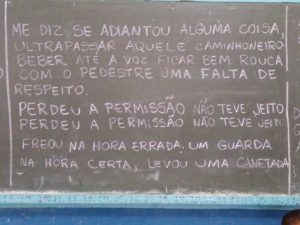 ME DIZ SE ADIANTOU ALGUMA COISA,
ULTRAPASSAR AQUELE CAMINHONEIRO
BEBER ATÉ A VOZ FICAR BEM ROUCA
COM O PEDESTRE UMA FALTA DE
RESPEITO.
PERDEU A PERMISSÃO NÃO TEVE JEITO
PERDEU A PERMISSÃO NÃO TEVE JEITO
FREOU NA HORA ERRADA, UM GUARDA
NA HORA CERTA, LEVOU UMA CANETADA